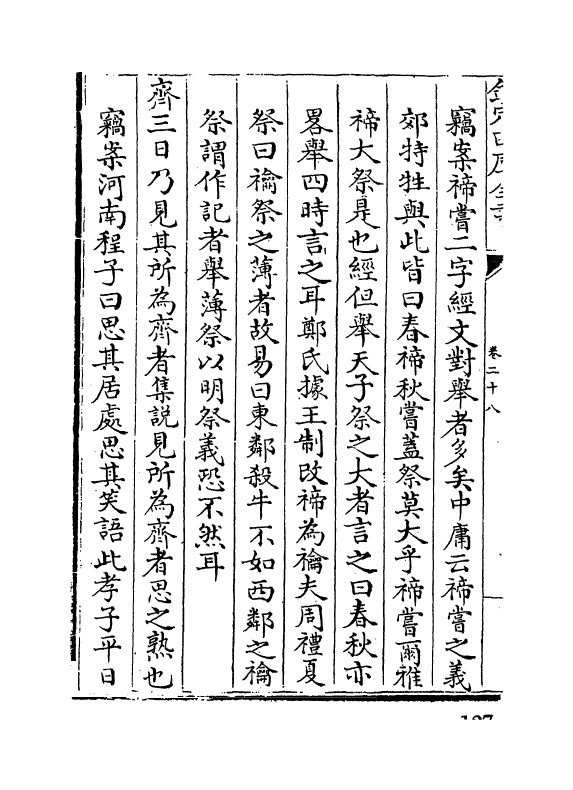 欽定四庫全書
卷二十八
竊案禘嘗二字經文對舉者多矣中庸云禘嘗之義
郊特牲與此皆曰春禘秋嘗蓋祭莫大乎禘嘗爾雅
禘大祭是也經但舉天子祭之大者言之曰春秋亦
畧舉四時言之耳鄭氏據王制改禘為禴夫周禮夏
祭曰禴祭之薄者故易曰東鄰殺牛不如西鄰之禴
祭謂作記者舉薄祭以明祭義恐不然耳
齊三日乃見其所為齊者集説見所為齊者思之熟也
竊案河南程子曰思其居處思其笑語此孝子平日